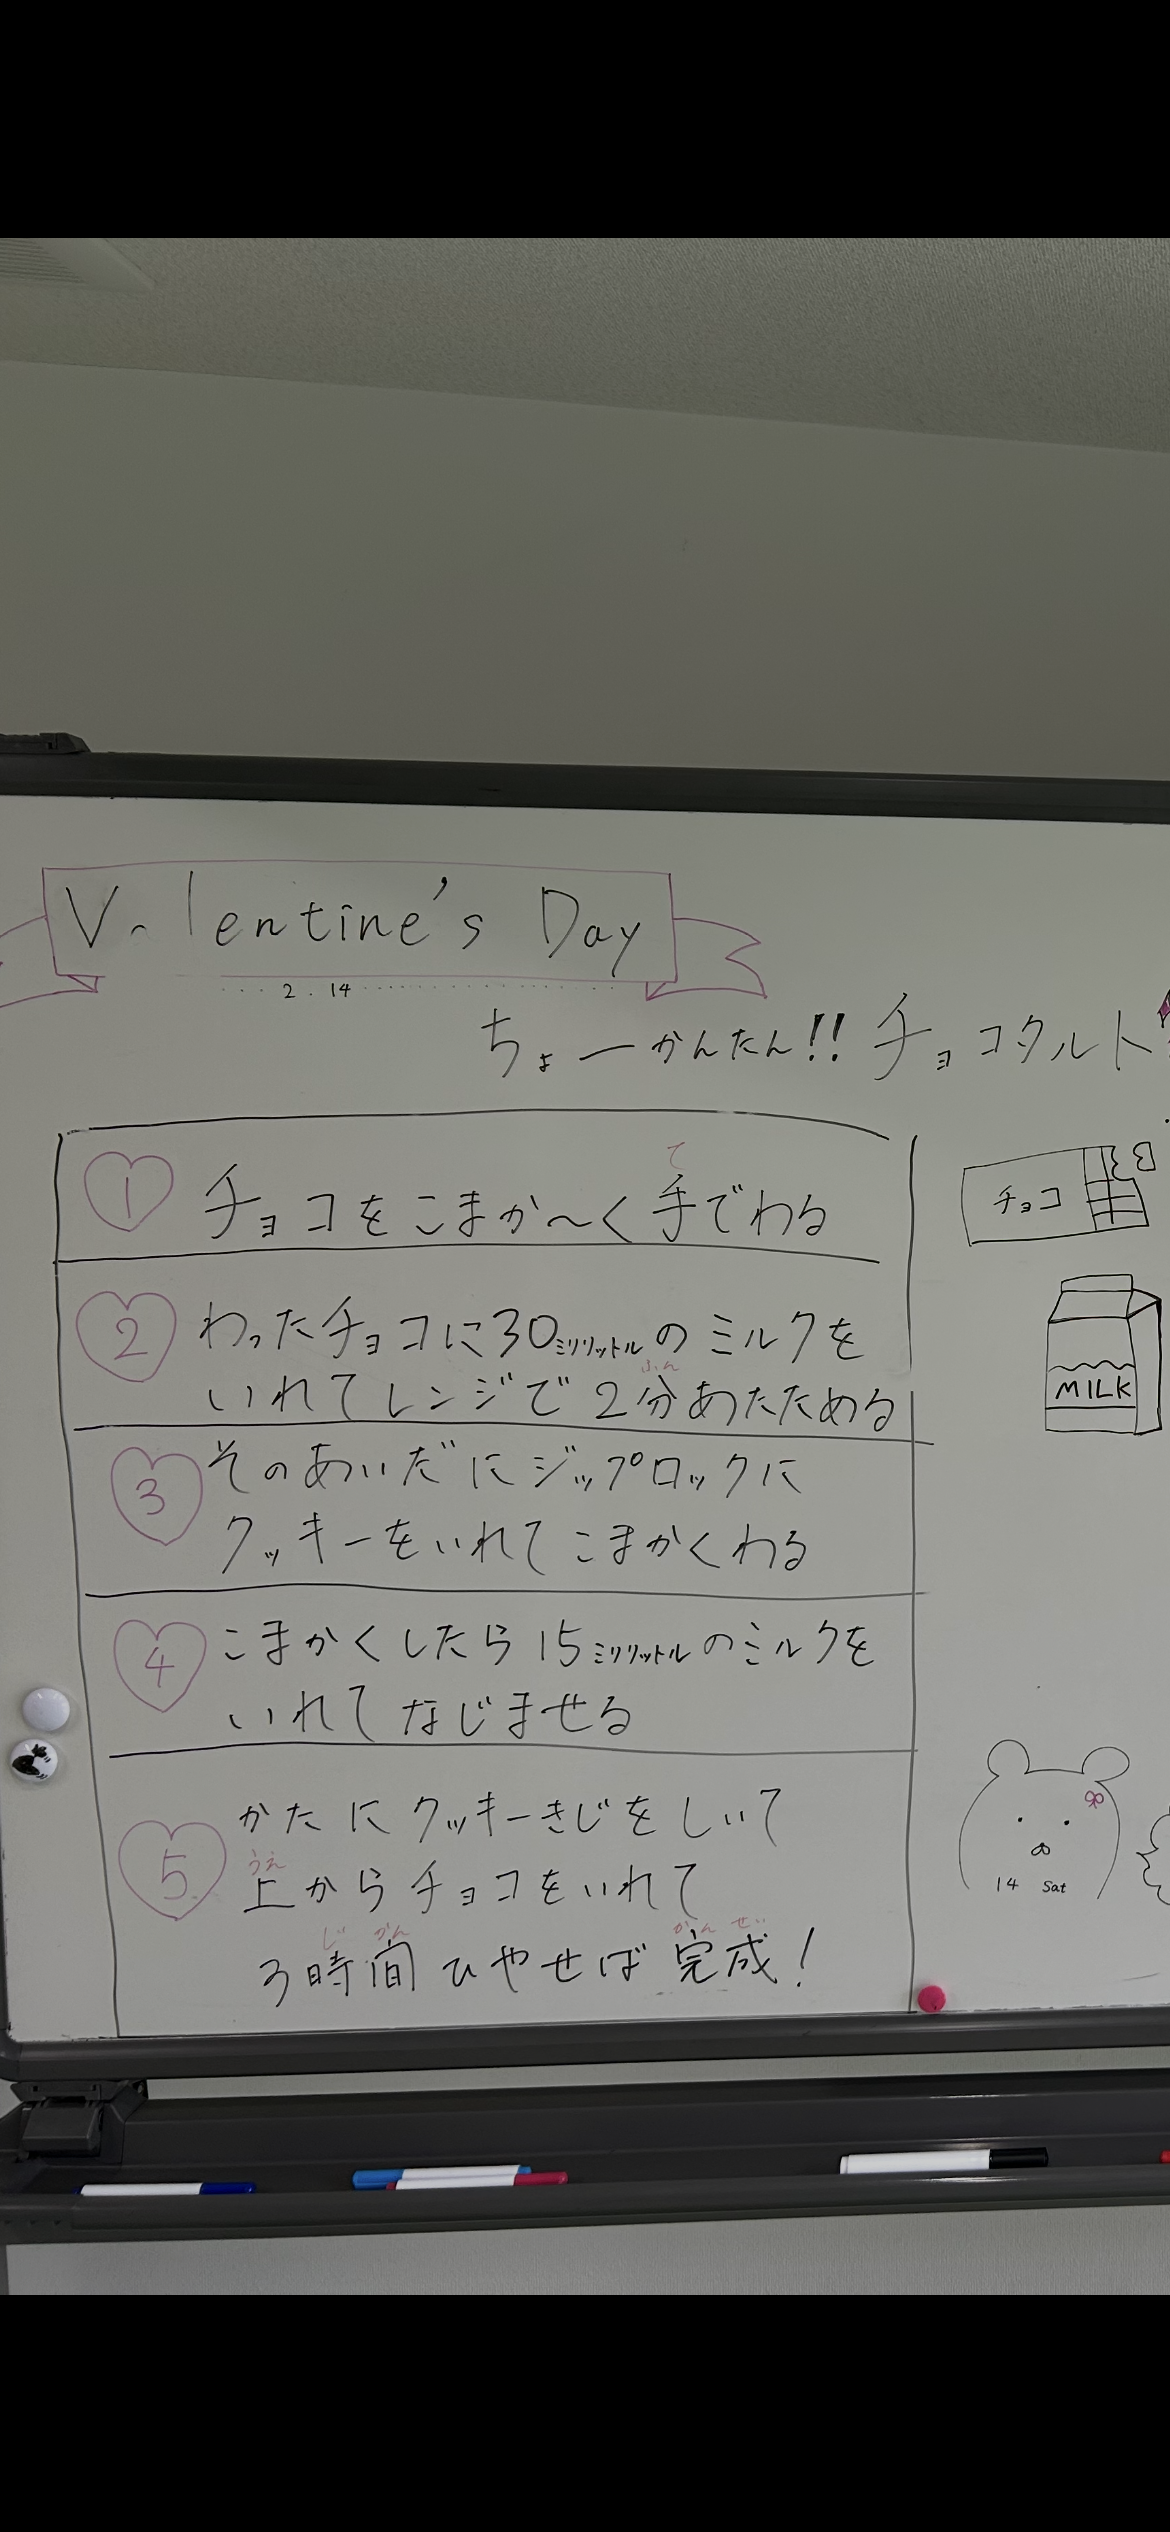 V lentine's Day
2.14
ちょーかんたん!! チョコタルト
1
て
チョコをこまか〜く手でわる
2
わったチョコに30ミリリットルのミルクを
ふん
いれてレンジで2分あたためる
3
そのあいだにジップロックに
クッキーをいれてこまかくわる
4
こまかくしたら15ミリリットルのミルクを
いれてなじませる
5
かたにクッキーきじをしいて
うえ
上からチョコをいれて
じかん かんせい
3時間ひやせば完成!
チョコ
MILK
14 Sat